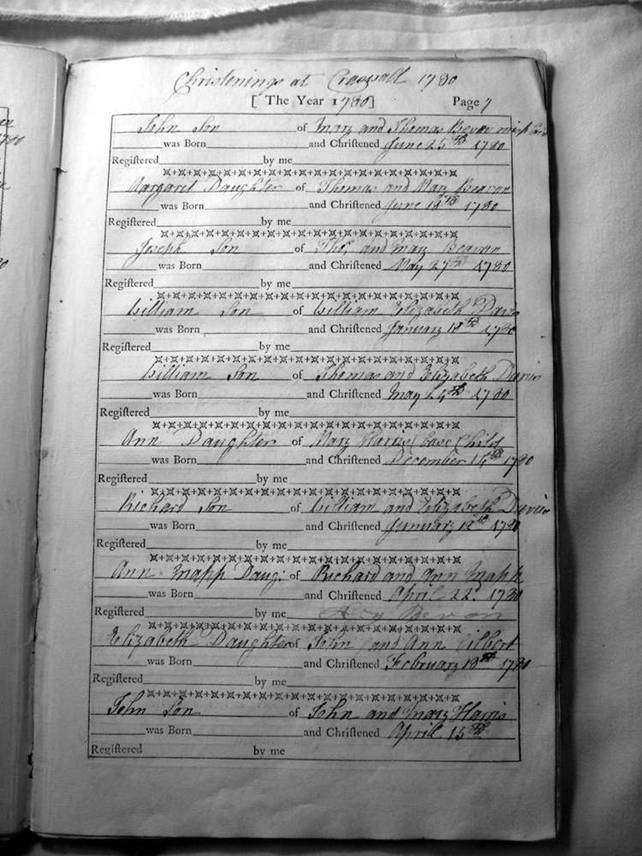 Christenings at Craswall 1780
[ The Year 1780] Page 7
John Son of Mary and Thomas Bevan
was Born and Chriſtened June 25th 1780
Regiſtered by me
Margaret Daughter of Thomas and Mary Beavan
was Born and Chriſtened June 1780
Regiſtered by me
Joseph Son of Thos and Mary Beavan
was Born and Chriſtened May 27th 1780
Regiſtered by me
William Son of William Elizabeth
was Born and Chriſtened January 18th 1780
Regiſtered by me
William Son of Thomas and Elizabeth
was Born and Chriſtened May 1780
Regiſtered by me
Ann Daughter of Mary Child
was Born and Chriſtened December 1780
Regiſtered by me
Richard Son of William and Elizabeth Davies
was Born and Chriſtened January 1780
Regiſtered by me
Ann Mapp Daug: of Richard and Ann Mapp
was Born and Chriſtened April 22d 1780
Regiſtered by me
Elizabeth Daughter of John and Ann Gilbert
was Born and Chriſtened February 1780
Regiſtered by me
John Son of John and Mary Harris
was Born and Chriſtened April 15th
Regiſtered by me